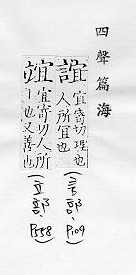 四聲篇海
誼 宜寄切理也
人所宜也
(言部, P109)
竩 宜寄切人所
也又善也
(立部, P558)